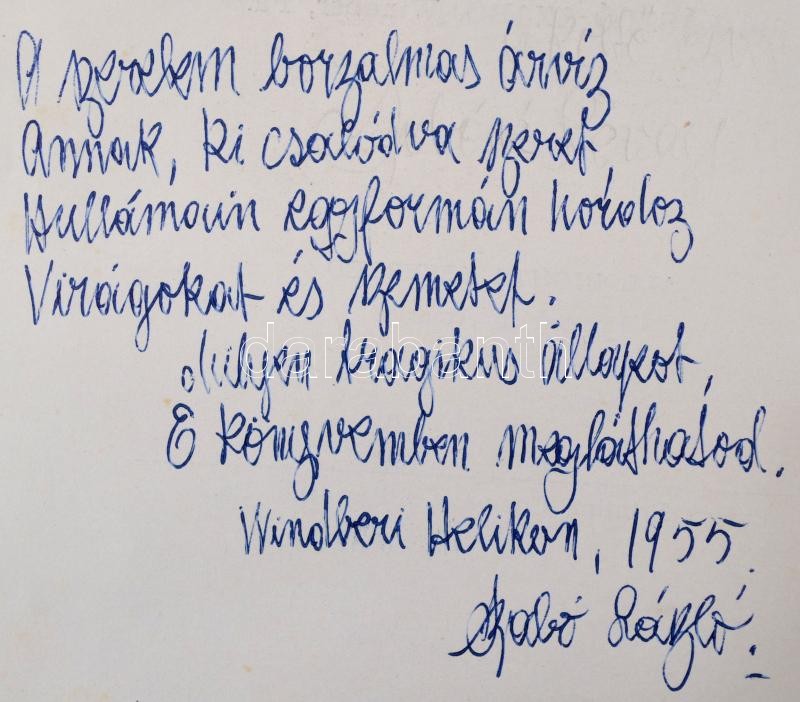 A szerelem borzalmas árvíz
Annak, ki csalódva szeret
Hullámain egyformán hordoz
Virágokat és szemetet.
Milyen tragikus állapot,
E könyvemben megláthatod.
Windberi Helikon, 1955.
Szabó László.
darabanth